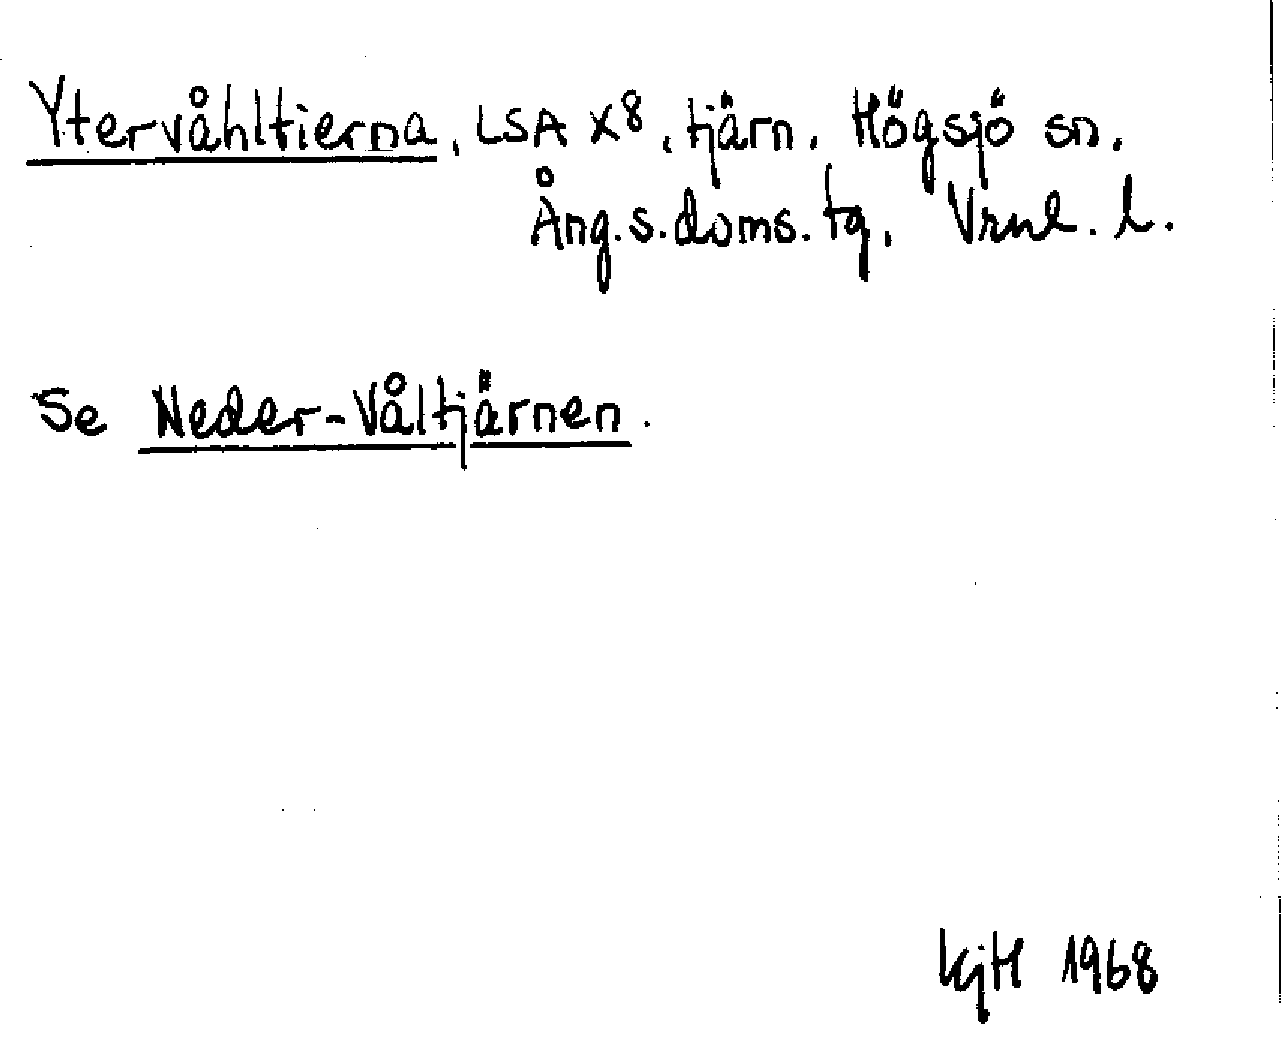 Ytervåhltierna, LSA X8, tjärn, Högsjö sn,
Ång.s.doms.tg, Vrnl. l.
Se Neder-Våltjärnen.
KjH 1968